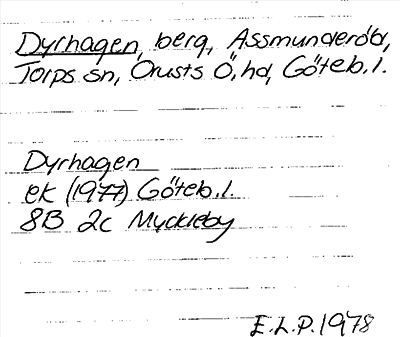 Dyrhagen, berg, Assmunderöd,
Torps sn, Orusts Ö, hd, Göteb. l.
Dyrhagen
ek (1977) Göteb. l.
8B 2c Myckleby
E.L.P. 1978